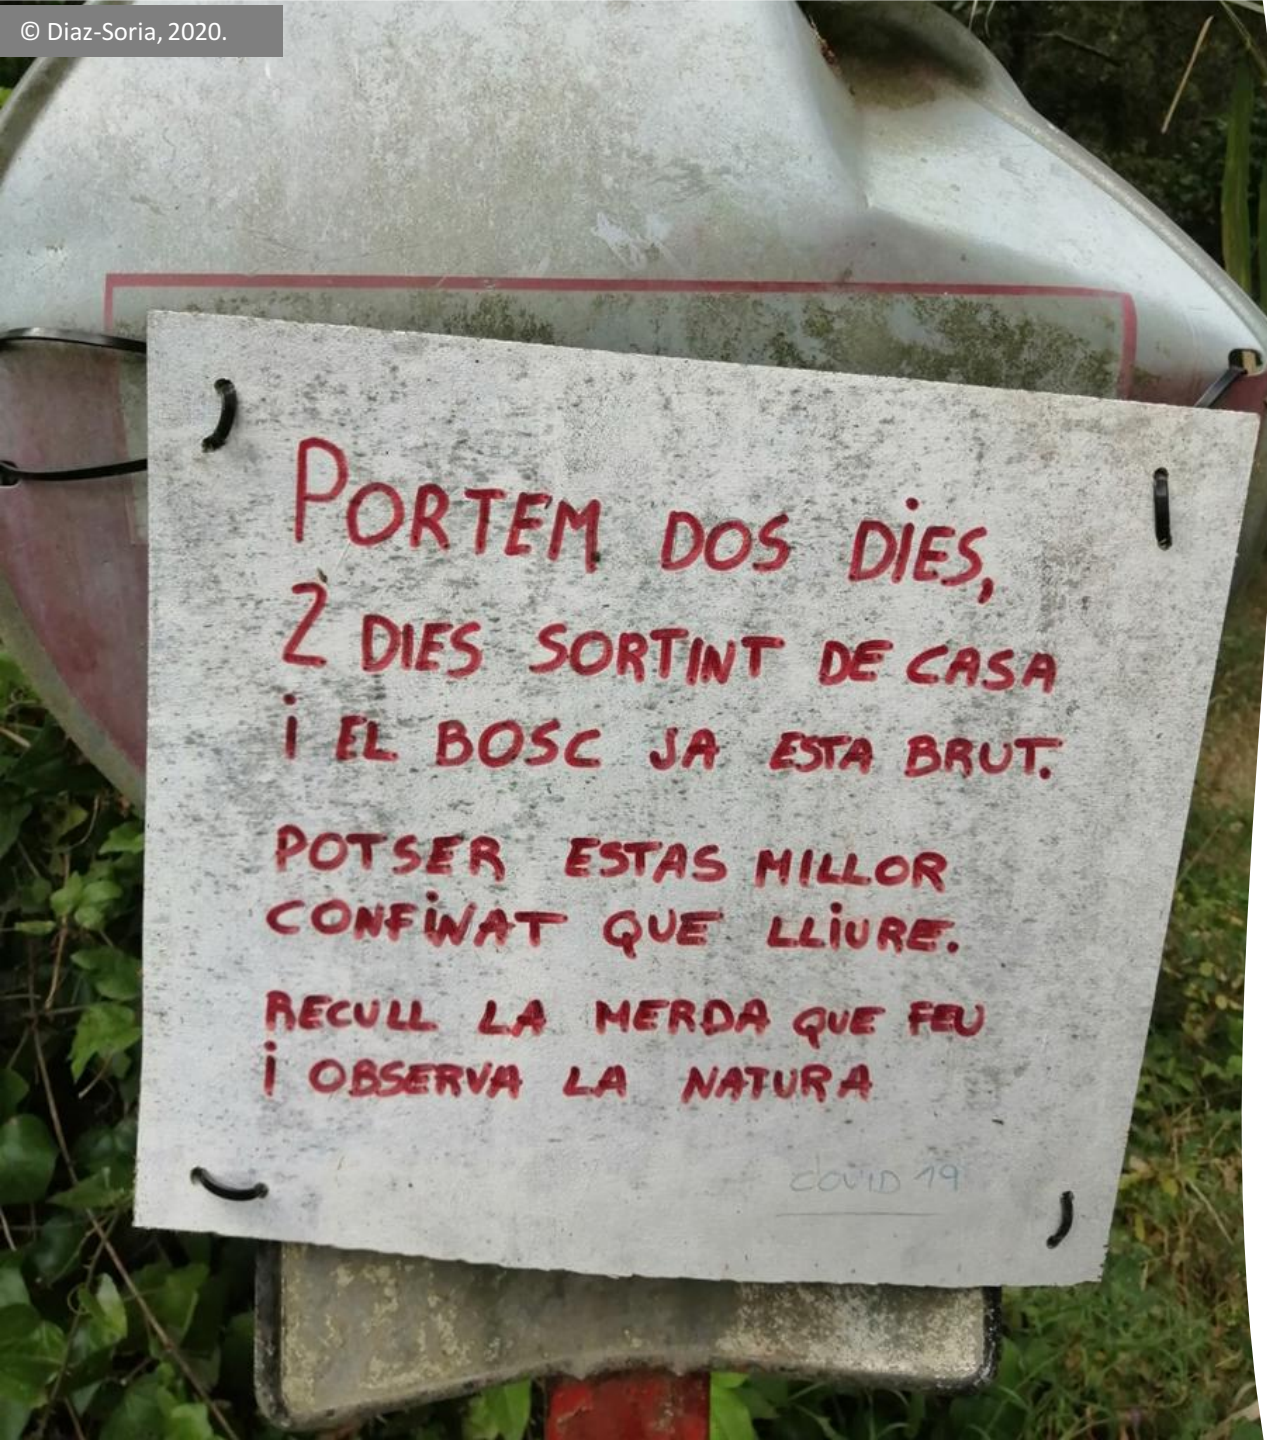 © Diaz-Soria, 2020.
PORTEM DOS DIES,
2 DIES SORTINT DE CASA
i EL BOSC JA ESTA BRUT.
POTSER ESTAS MILLOR
CONFINAT QUE LLIURE.
RECULL LA MERDA QUE FEU
i OBSERVA LA NATURA
COVID 19